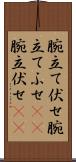 腕立て伏せ腕
立てふせ
腕立伏せ